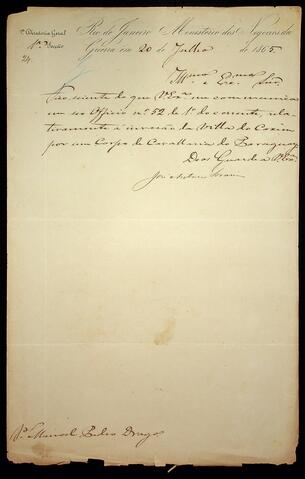 2ª Directoria Geral
1ª Secção
Rio de Janeiro Ministerio dos Negocios da
Guerra em 20 de Julho de 1865
Illmo e Exmo Snr.
sciente do que V. Exª me communica
em seo Officio nº 52 de 1º do corrente, rela-
tivamente á invasão da Villa do Coxim
por um Corpo de Cavallaria do Paraguay.
Deos Guarde a V. Exª
Manoel Pedro Drago